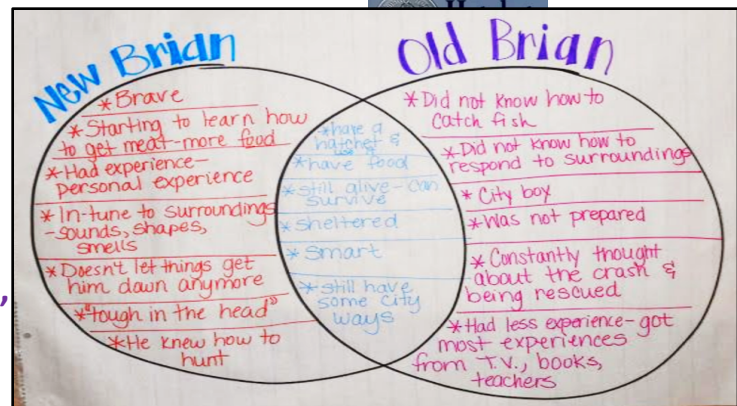 New Brian
*Brave
*Starting to learn how
to get meat-more food
*Had experience-
personal experience
*In-tune to surroundings
-sounds, shapes,
smells
*Doesn't let things get
him down anymore
*"tough in the head"
*He knew how to
hunt
*have a
hatchet &
*have food
*still alive-can
survive
*sheltered
*smart
*still have
some city
ways
Old Brian
*Did not know how to
catch fish
*Did not know how to
respond to surroundings
*City boy
*Was not prepared
*Constantly thought
about the crash &
being rescued
*Had less experience-got
most experiences
from T.V., books,
teachers